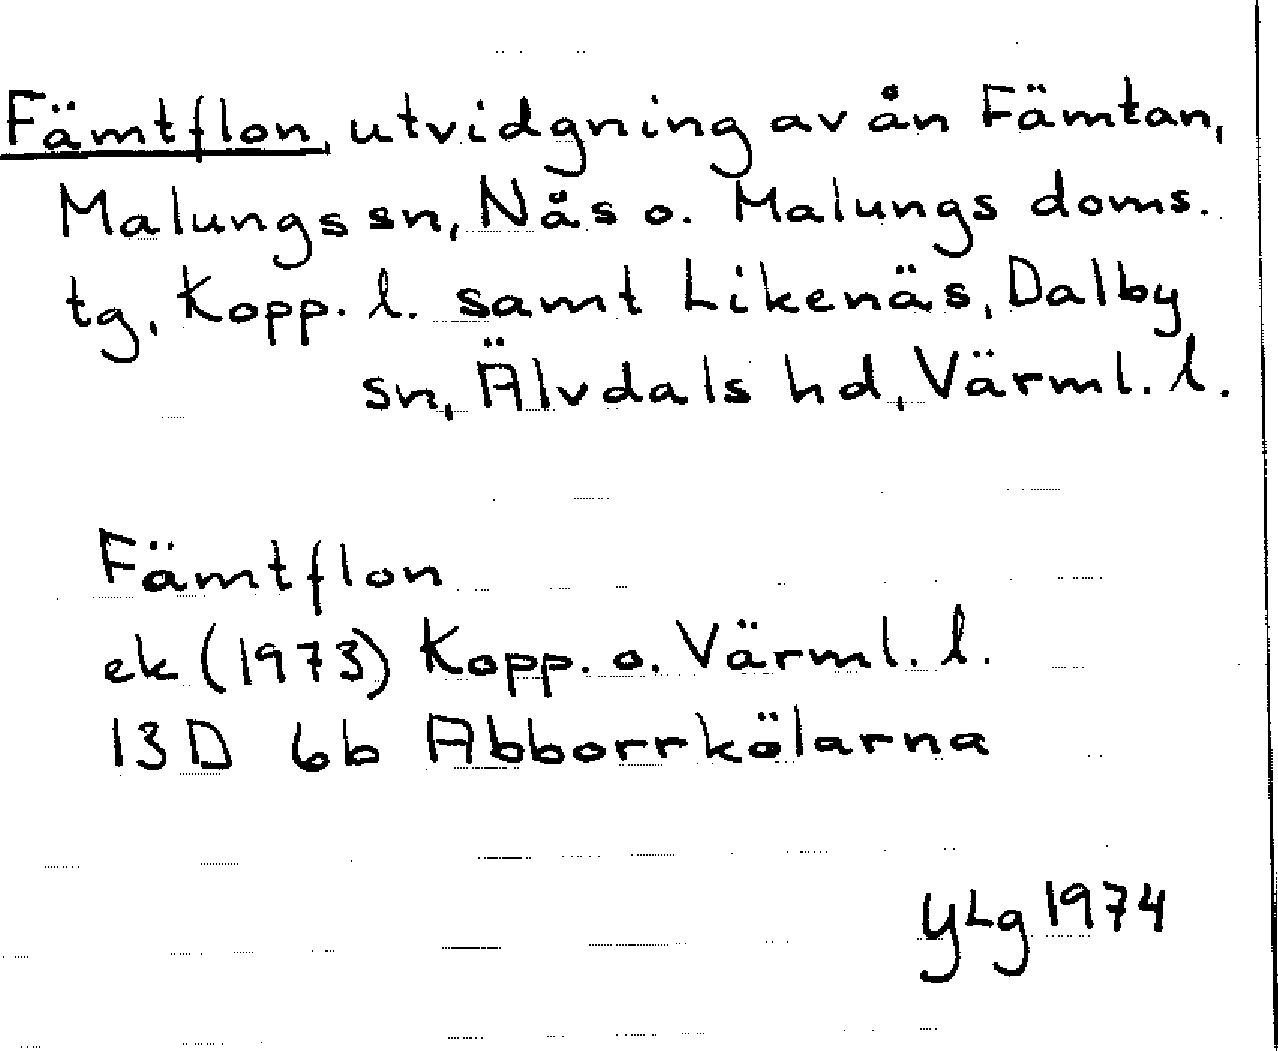 Fämtflon, utvidgning av ån Fämtan,
Malungs sn, Nås o. Malungs doms.
tg, Kopp. l. samt Likenäs, Dalby
sn, Älvdals hd, Värml. l.
Fämtflon
ek (1973) Kopp. o. Värml. l.
13D 6b Abborrkölarna
YLg 1974